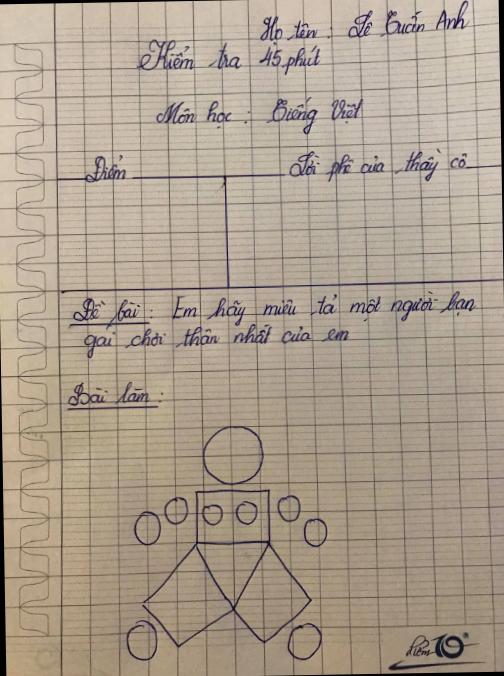 Họ tên : Lê Tuấn Anh
Kiểm tra 45 phút
Môn học : Tiếng Việt
Điểm
Lời phê của thầy cô
Đề bài : Em hãy miêu tả một người bạn
gái chơi thân nhất của em
Bài làm :
điểm 10